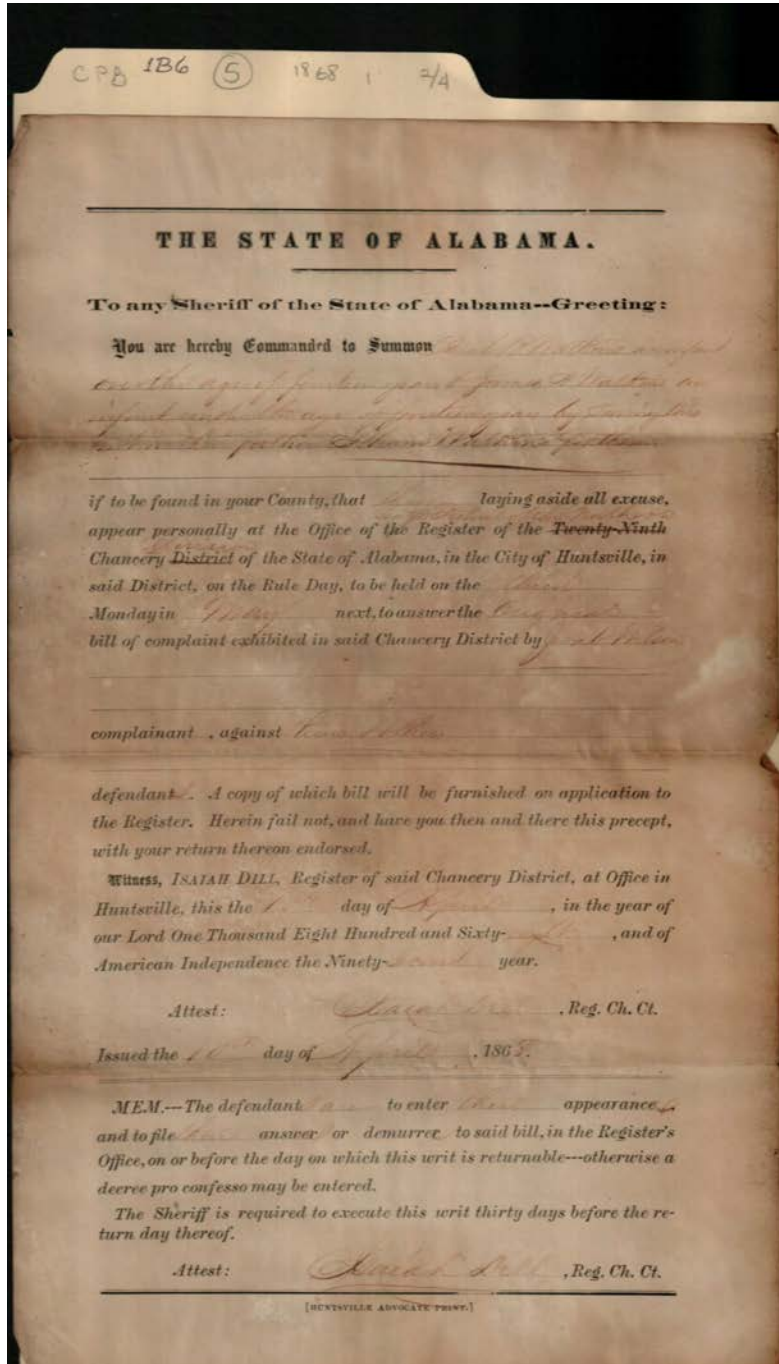 CPB 1B6 5 1868 1 2/4
THE STATE OF ALABAMA.
To any Sheriff of the State of Alabama--Greeting:
You are hereby Commanded to Summon
under the age of fourteen years & James Watkins an
infant under the age of fourteen years by
father Watkins
if to be found in your County, that laying aside all excuse,
appear personally at the Office of the Register of the Twenty-Ninth
Chancery District of the State of Alabama, in the City of Huntsville, in
said District, on the Rule Day, to be held on the
Monday in next, to answer the Original
bill of complaint exhibited in said Chancery District by
complainant , against
defendants. A copy of which bill will be furnished on application to
the Register. Herein fail not, and have you then and there this precept,
with your return thereon endorsed.
Witness, ISAIAH DILL, Register of said Chancery District, at Office in
Huntsville, this the day of April , in the year of
our Lord One Thousand Eight Hundred and Sixty- , and of
American Independence the Ninety-second year.
Attest: Isaiah Dill , Reg. Ch. Ct.
Issued the day of April , 1868.
MEM.---The defendants are to enter their appearance,
and to file their answer or demurrer to said bill, in the Register's
Office, on or before the day on which this writ is returnable---otherwise a
decree pro confesso may be entered.
The Sheriff is required to execute this writ thirty days before the re-
turn day thereof.
Attest: Isaiah Dill , Reg. Ch. Ct.
[HUNTSVILLE ADVOCATE PRINT.]